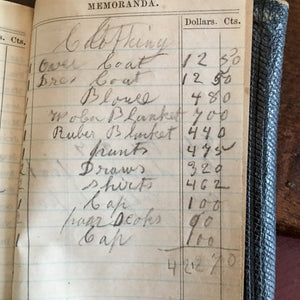 MEMORANDA.
s. Cts. Dollars. Cts.
Clothing
Over Coat 12 50
Dres Coat 12 50
Blouce 480
Wolen Blanket 700
Ruber Blanket 440
pants 475
Draws 320
Shirts 462
Cap 100
pair Socks 90
Cap 100
70